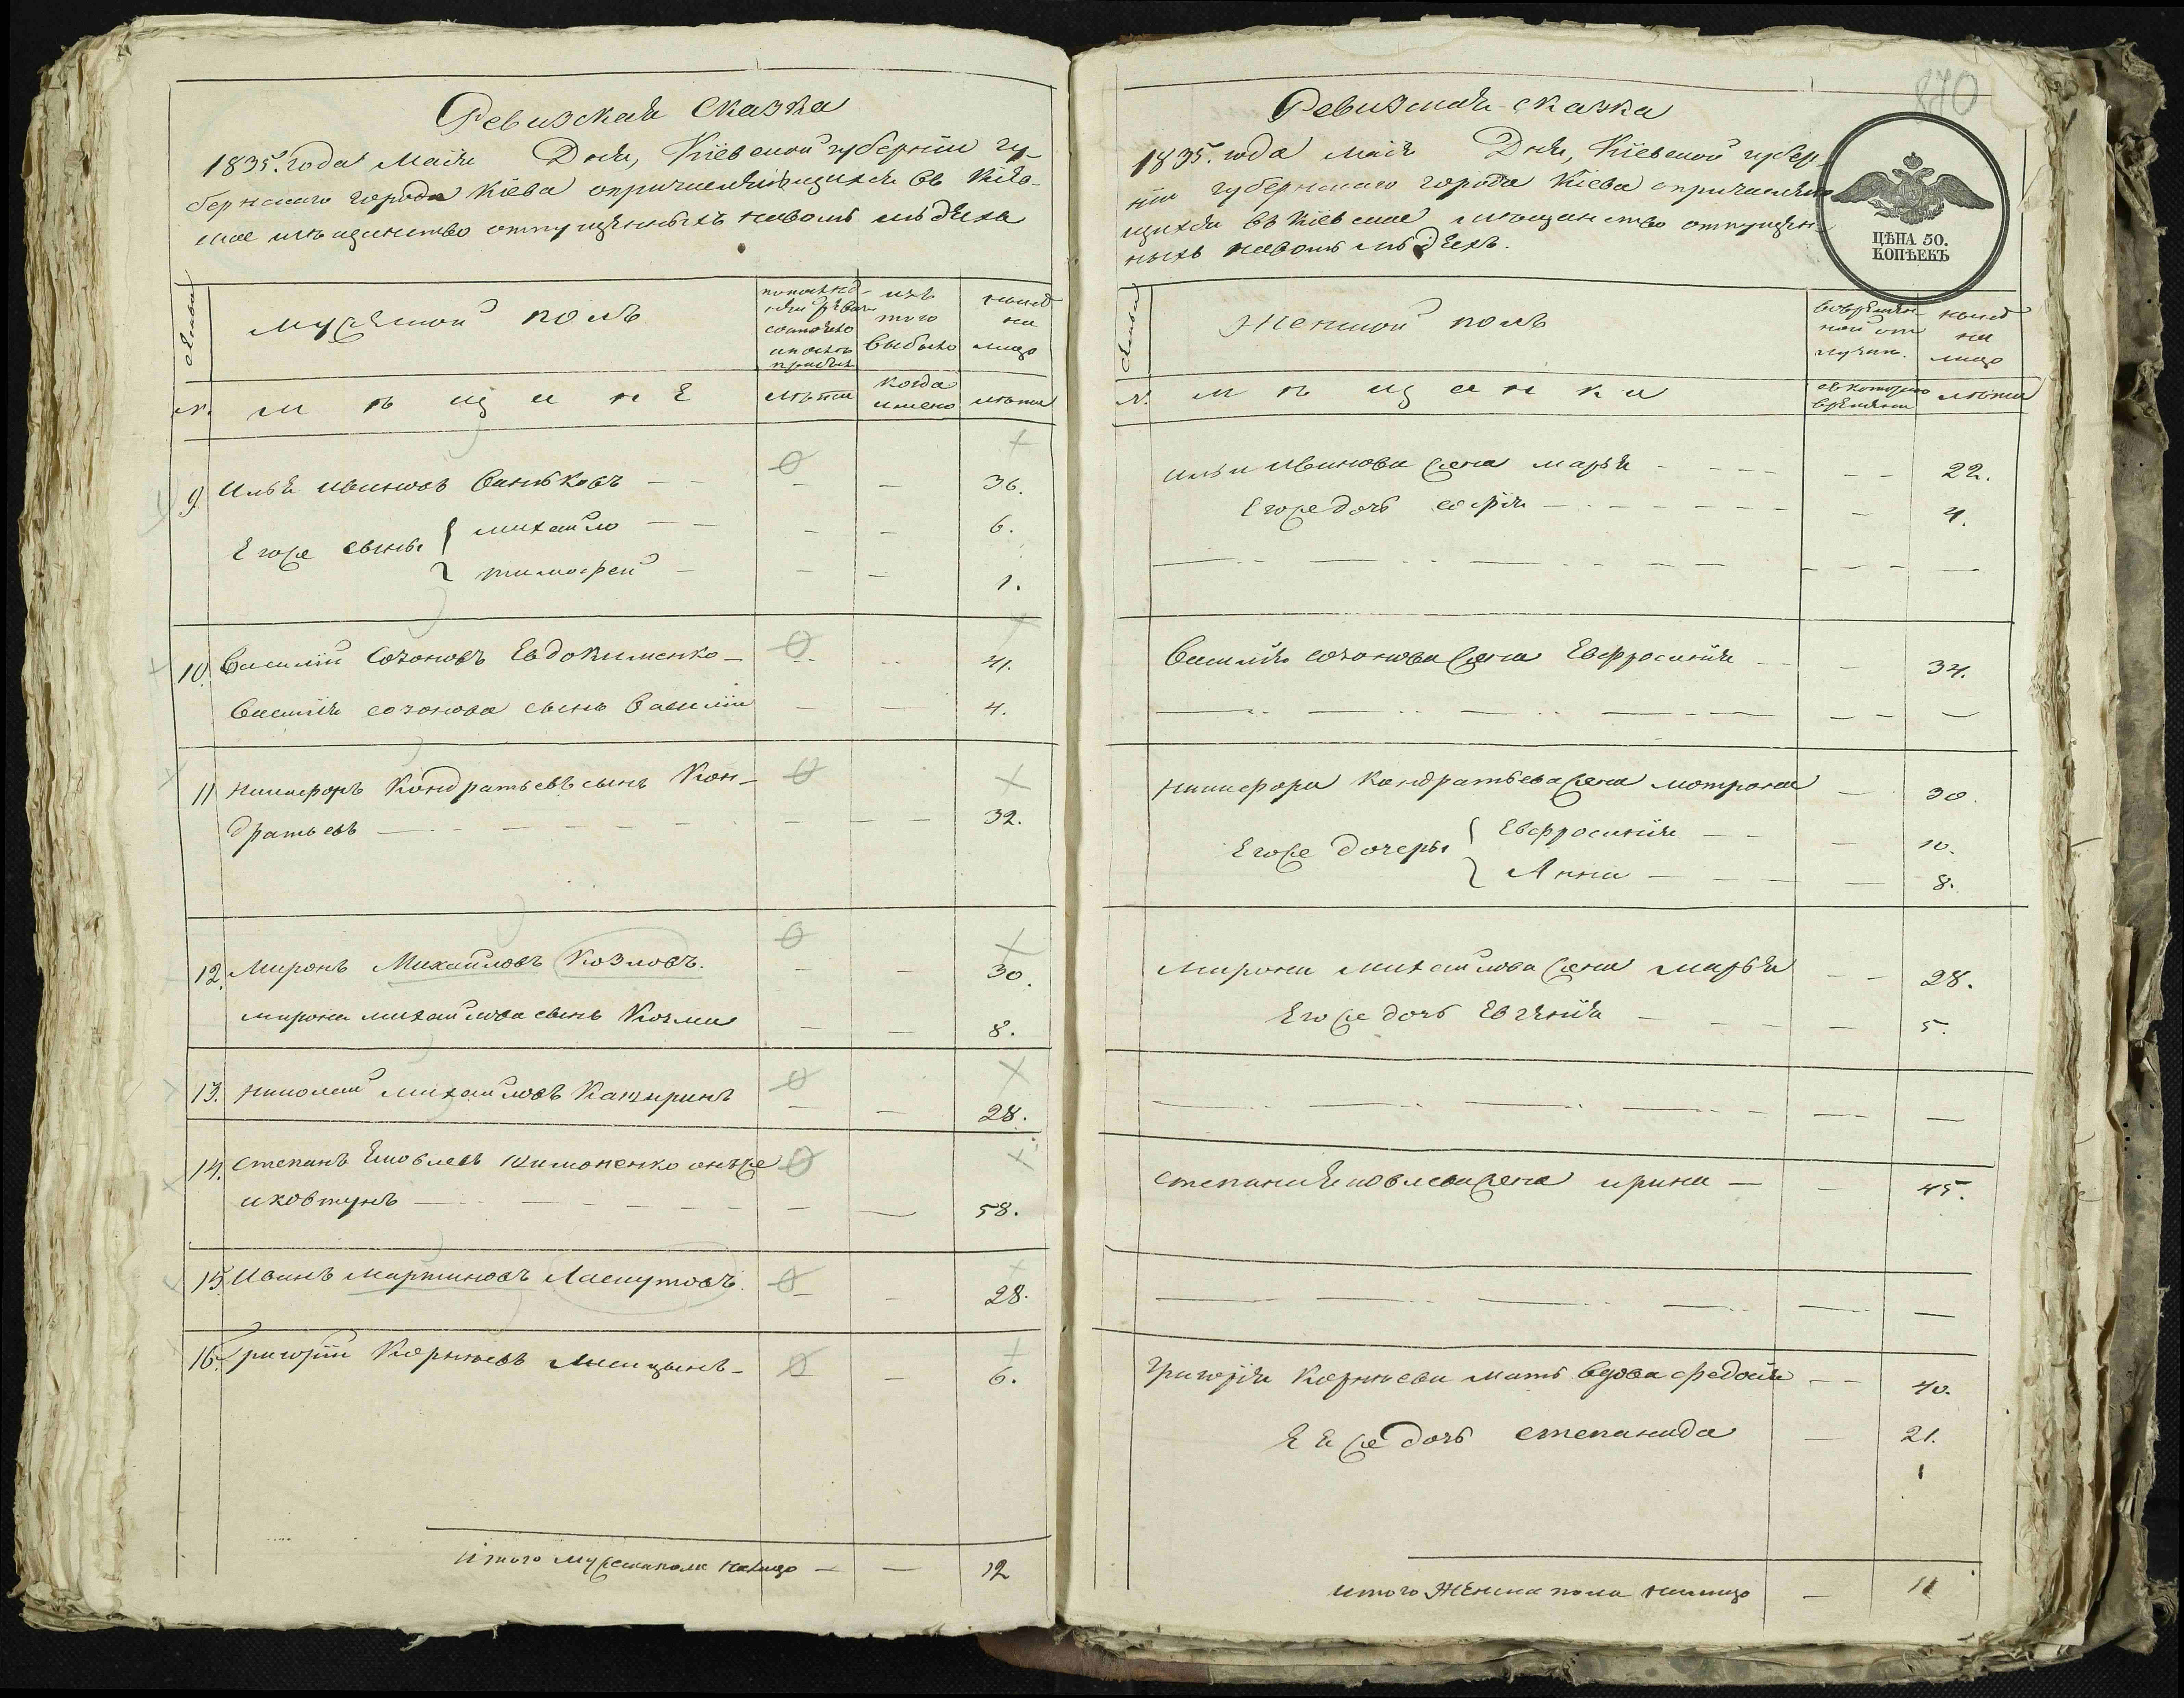 Ревизская Сказка
1835. года Маія Дня, Кіевской губерніи гу-
бернскаго города Кіева о причислившихся въ Кіев-
ское мѣщанство отпущенныхъ на волю людехъ
Семьи
Мужеской полъ
изъ
того
выбыло
нынѣ
на
лицо
№.
Мѣщане
лѣта
когда
имено
лѣта
9. Илья Ивановъ Ваньковъ — — — 36.
Егоже сыны { михайло — — — 6.
тимофей — — — 1.
10. Василій Созоновъ Евдокименко — 41.
Василія созонова сынъ Василій — — 4.
11 Никифоръ Кондратьевъ сынъ Кон-
дратьевъ — — — 32.
12. Миронъ Михайловъ Козловъ. — — 30.
мирона михайлова сынъ Козма — — 8.
13. николай михайловъ — — 28.
14. Степанъ Яковлевъ онъже
иковтунъ — — — 58.
15. Иванъ мартиновъ Ласкутовъ. — — 28.
16. Григорій Корнѣевъ — — 6.
Итого мужеска пола налицо — — 12
870
Ревизская сказка
1835. года маія Дня, Кіевской губер-
ніи губернскаго города Кіева о причислив-
шихся въ Кіевское мѣщанство отпущен-
ныхъ на волю людехъ.
ЦѢНА 50.
КОПѢЕКЪ
Семьи
Женской полъ
во времен-
ной от
лучке.
нынѣ
на
лицо
№.
Мѣщанки
съ котораго
времени
лѣта
Ильи Иванова жена марья — — — 22.
Егоже дочь софія — — — 4.
Василія созонова жена Евфросинія — — 34.
Никифора Кондратьева жена мотрона — 30.
Егоже дочеры { Евфросинія — — 10.
Анна — — 8.
мирона михайлова жена марья — — 28.
Егоже дочь Евгенія — — 5.
степана яковлева жена ирина — — 45.
Григорія Корнѣева мать вдова федосія — — 40.
Ея же дочь степанида — 21.
итого Женска пола налицо — 11